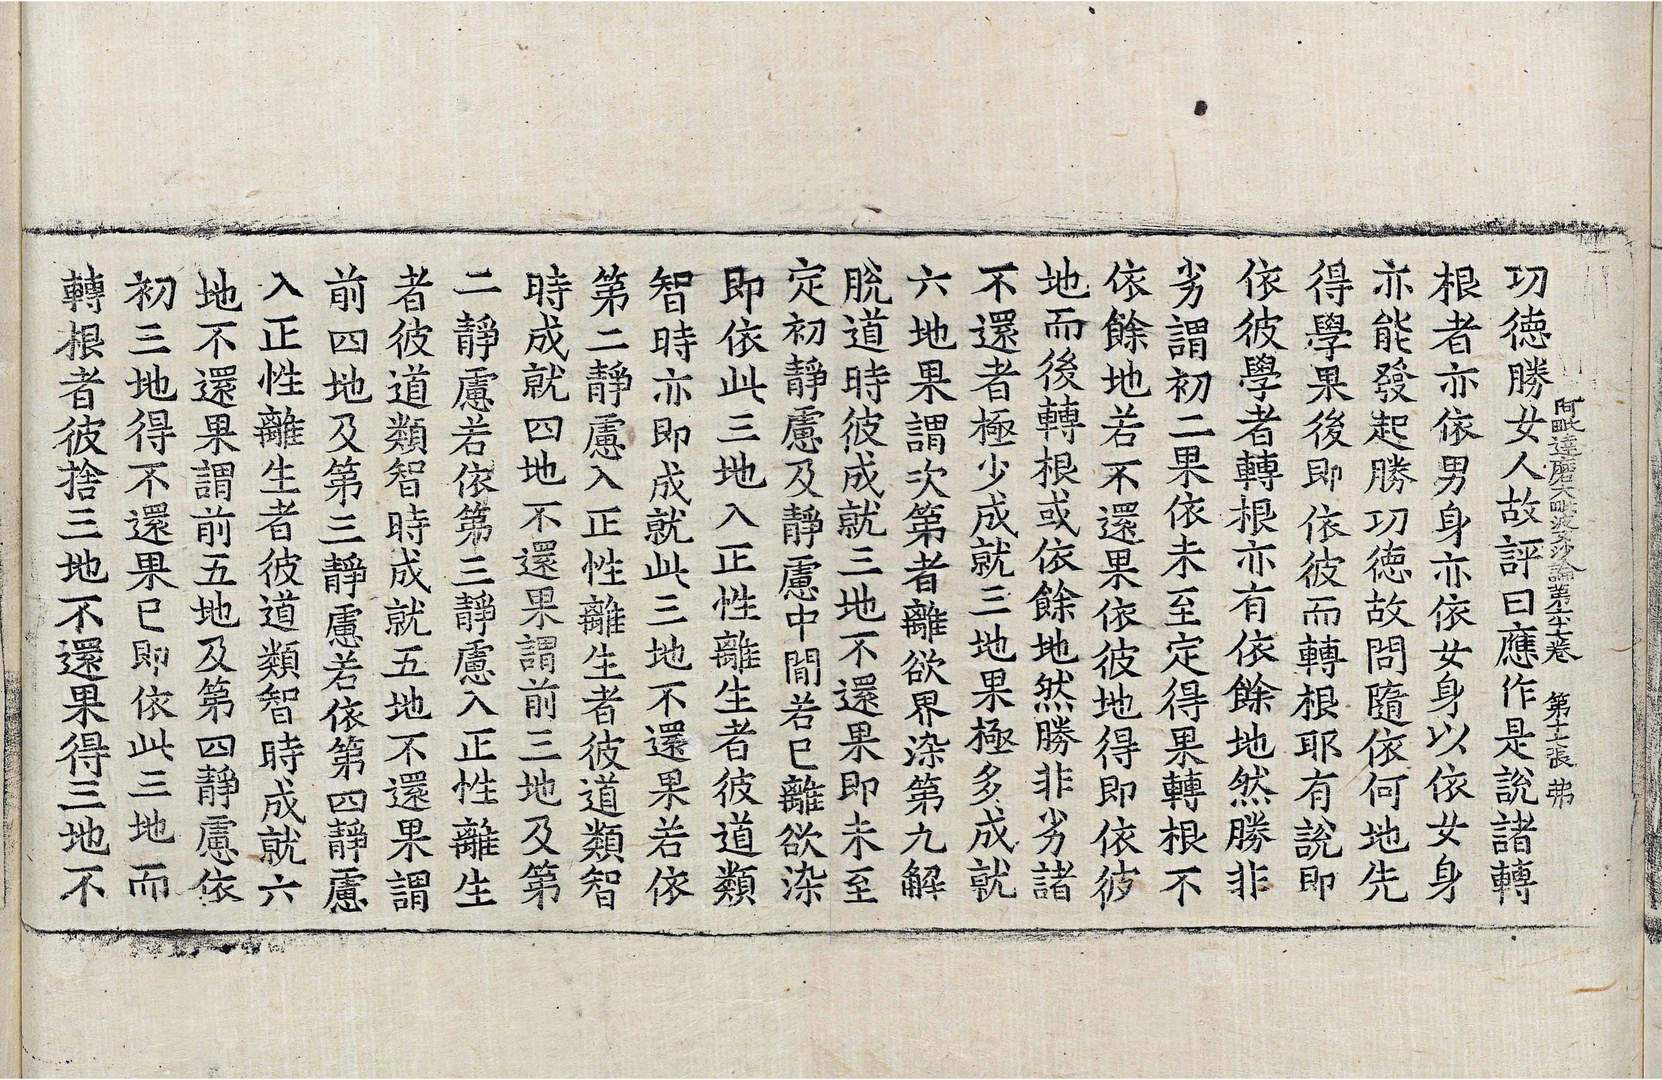 阿毗達磨大毗婆沙論第六十七卷 第十二張 弗
功德勝女人故評曰應作是說諸轉
根者亦依男身亦依女身以依女身
亦能發起勝功德故問隨依何地先
得學果後即依彼而轉根耶有說即
依彼學者轉根亦有依餘地然勝非
劣謂初二果依未至定得果轉根不
依餘地若不還果依彼地得即依彼
地而後轉根或依餘地然勝非劣諸
不還者極少成就三地果極多成就
六地果謂次第者離欲界染第九解
脫道時彼成就三地不還果即未至
定初靜慮及靜慮中間若已離欲染
即依此三地入正性離生者彼道類
智時亦即成就此三地不還果若依
第二靜慮入正性離生者彼道類智
時成就四地不還果謂前三地及第
二靜慮若依第三靜慮入正性離生
者彼道類智時成就五地不還果謂
前四地及第三靜慮若依第四靜慮
入正性離生者彼道類智時成就六
地不還果謂前五地及第四靜慮依
初三地得不還果已即依此三地而
轉根者彼捨三地不還果得三地不